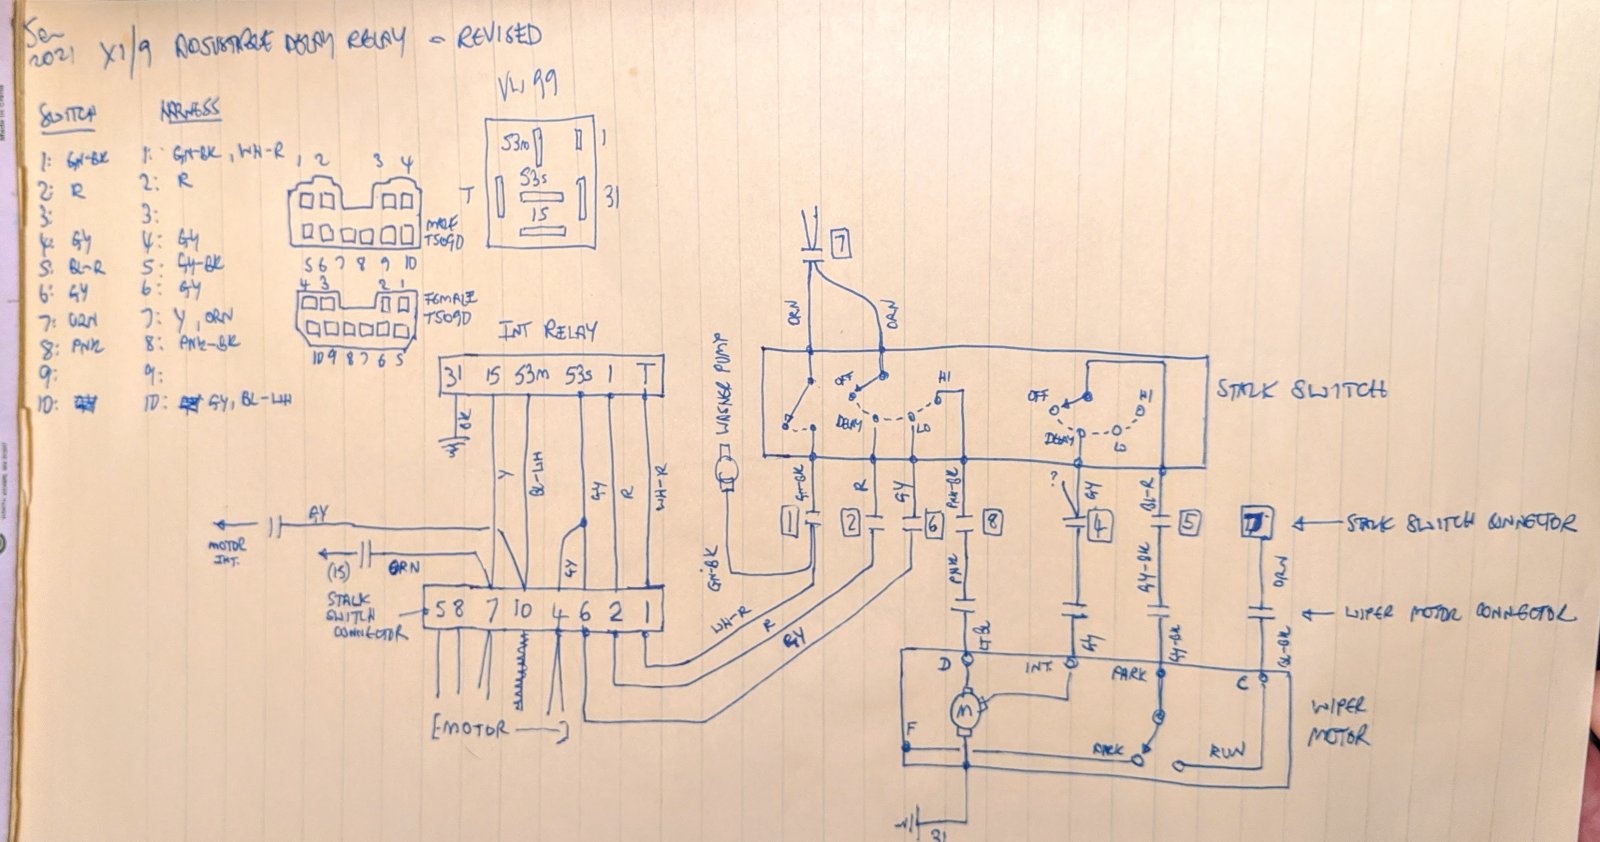 Jan
2021
X1/9 ADJUSTABLE DELAY RELAY - REVISED
SWITCH
HARNESS
1: GN-BK
1: GN-BK, WH-R
2: R
2: R
3:
3:
4: GY
4: GY
5: BL-R
5: GY-BK
6: GY
6: GY
7: ORN
7: Y, ORN
8: PNK
8: PNK-BK
9:
9:
10:
10: GY, BL-WH
1 2 3 4
MALE
T509D
5 6 7 8 9 10
4 3 2 1
FEMALE
T509D
10 9 8 7 6 5
VW 99
53m
1
T
53s
31
15
INT RELAY
31 15 53m 53s 1 T
BK
Y
BL-WH
GY
R
WH-R
GY
GY
MOTOR
INT.
(15)
ORN
STALK
SWITCH
CONNECTOR
5 8 7 10 4 6 2 1
[MOTOR]
WASHER PUMP
GN-BK
WH-R
R
GY
7
ORN
ORN
OFF
HI
DELAY
LO
OFF
HI
DELAY
LO
STALK SWITCH
GN-BK
R
GY
PNK-BK
?
GY
BL-R
1
2
6
8
4
5
STALK SWITCH CONNECTOR
PNK
GY-BK
ORN
WIPER MOTOR CONNECTOR
LT BL
GY
GY-BK
BL-BK
D
INT.
PARK
C
M
F
PARK
RUN
WIPER
MOTOR
31